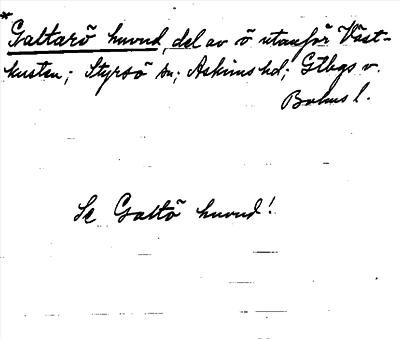 * Galtarö huvud, del av ö utanför Väst-
kusten; Styrsö sn; Askims hd; Gtbgs o.
Bohus l.
Se Galtö huvud!